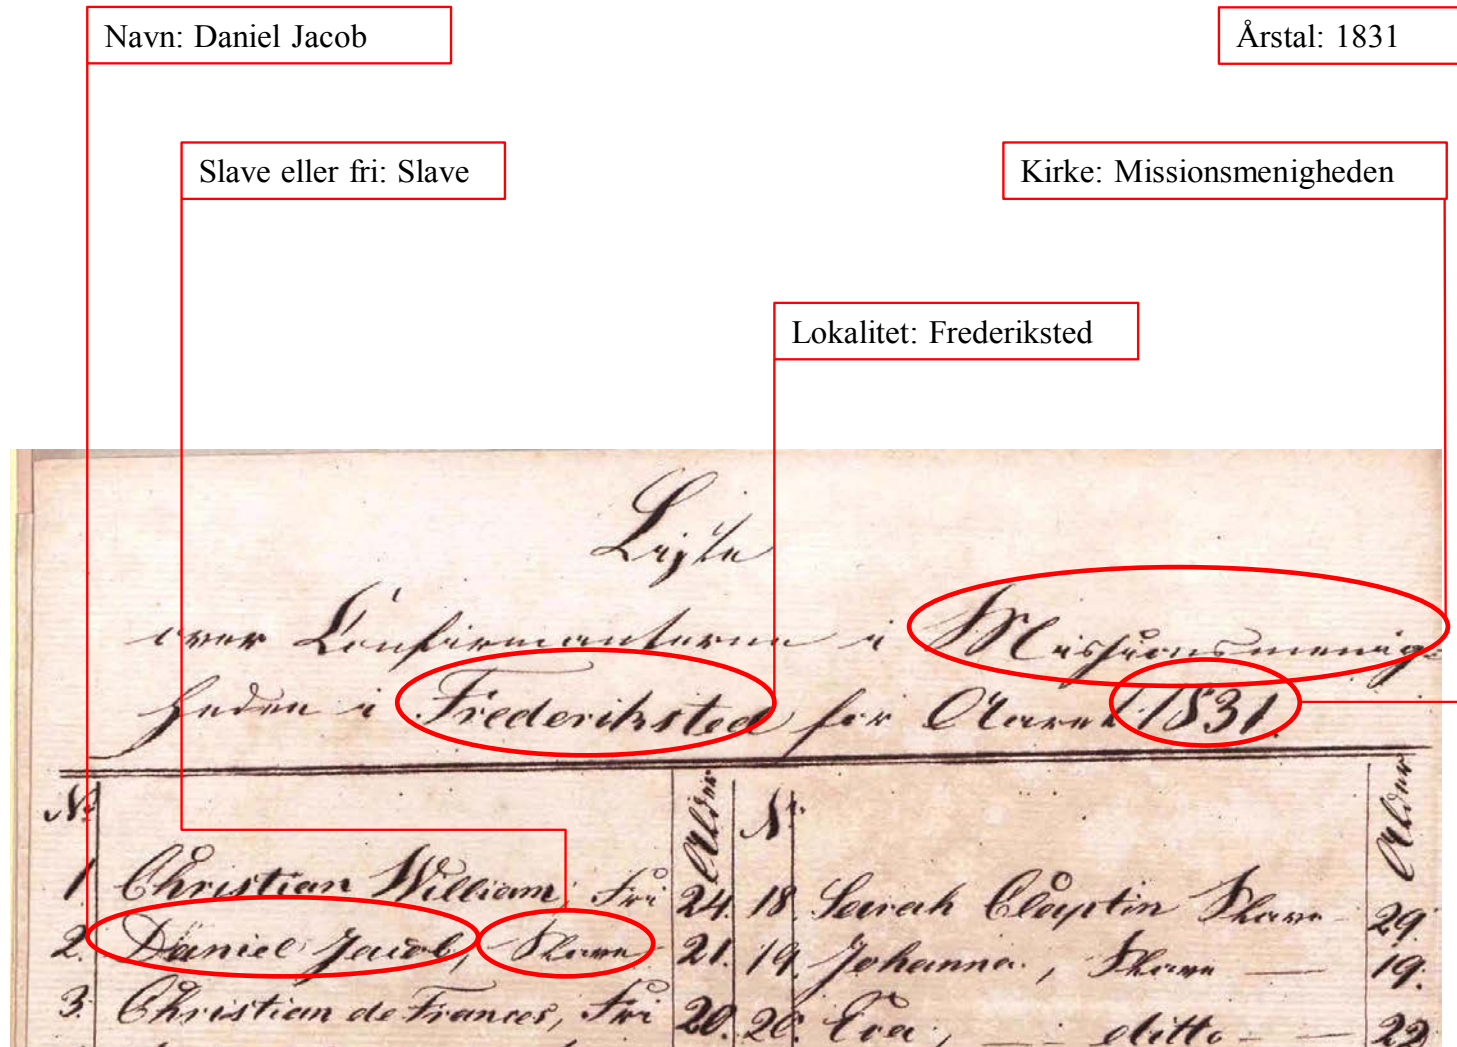 Navn: Daniel Jacob
Årstal: 1831
Slave eller fri: Slave
Kirke: Missionsmenigheden
Lokalitet: Frederiksted
Liste
over Confirmanterne i Missionsmenig-
heden i Frederiksted for Aaret 1831.
No Alder No Alder
1. Christian William, Fri 24. 18 Sarah Claptin Slave 29.
2. Daniel Jacob, Slave 21. 19. Johanna, Slave — 19.
3. Christian de Frances, Fri 20. 20. Eva, — ditto — — 22